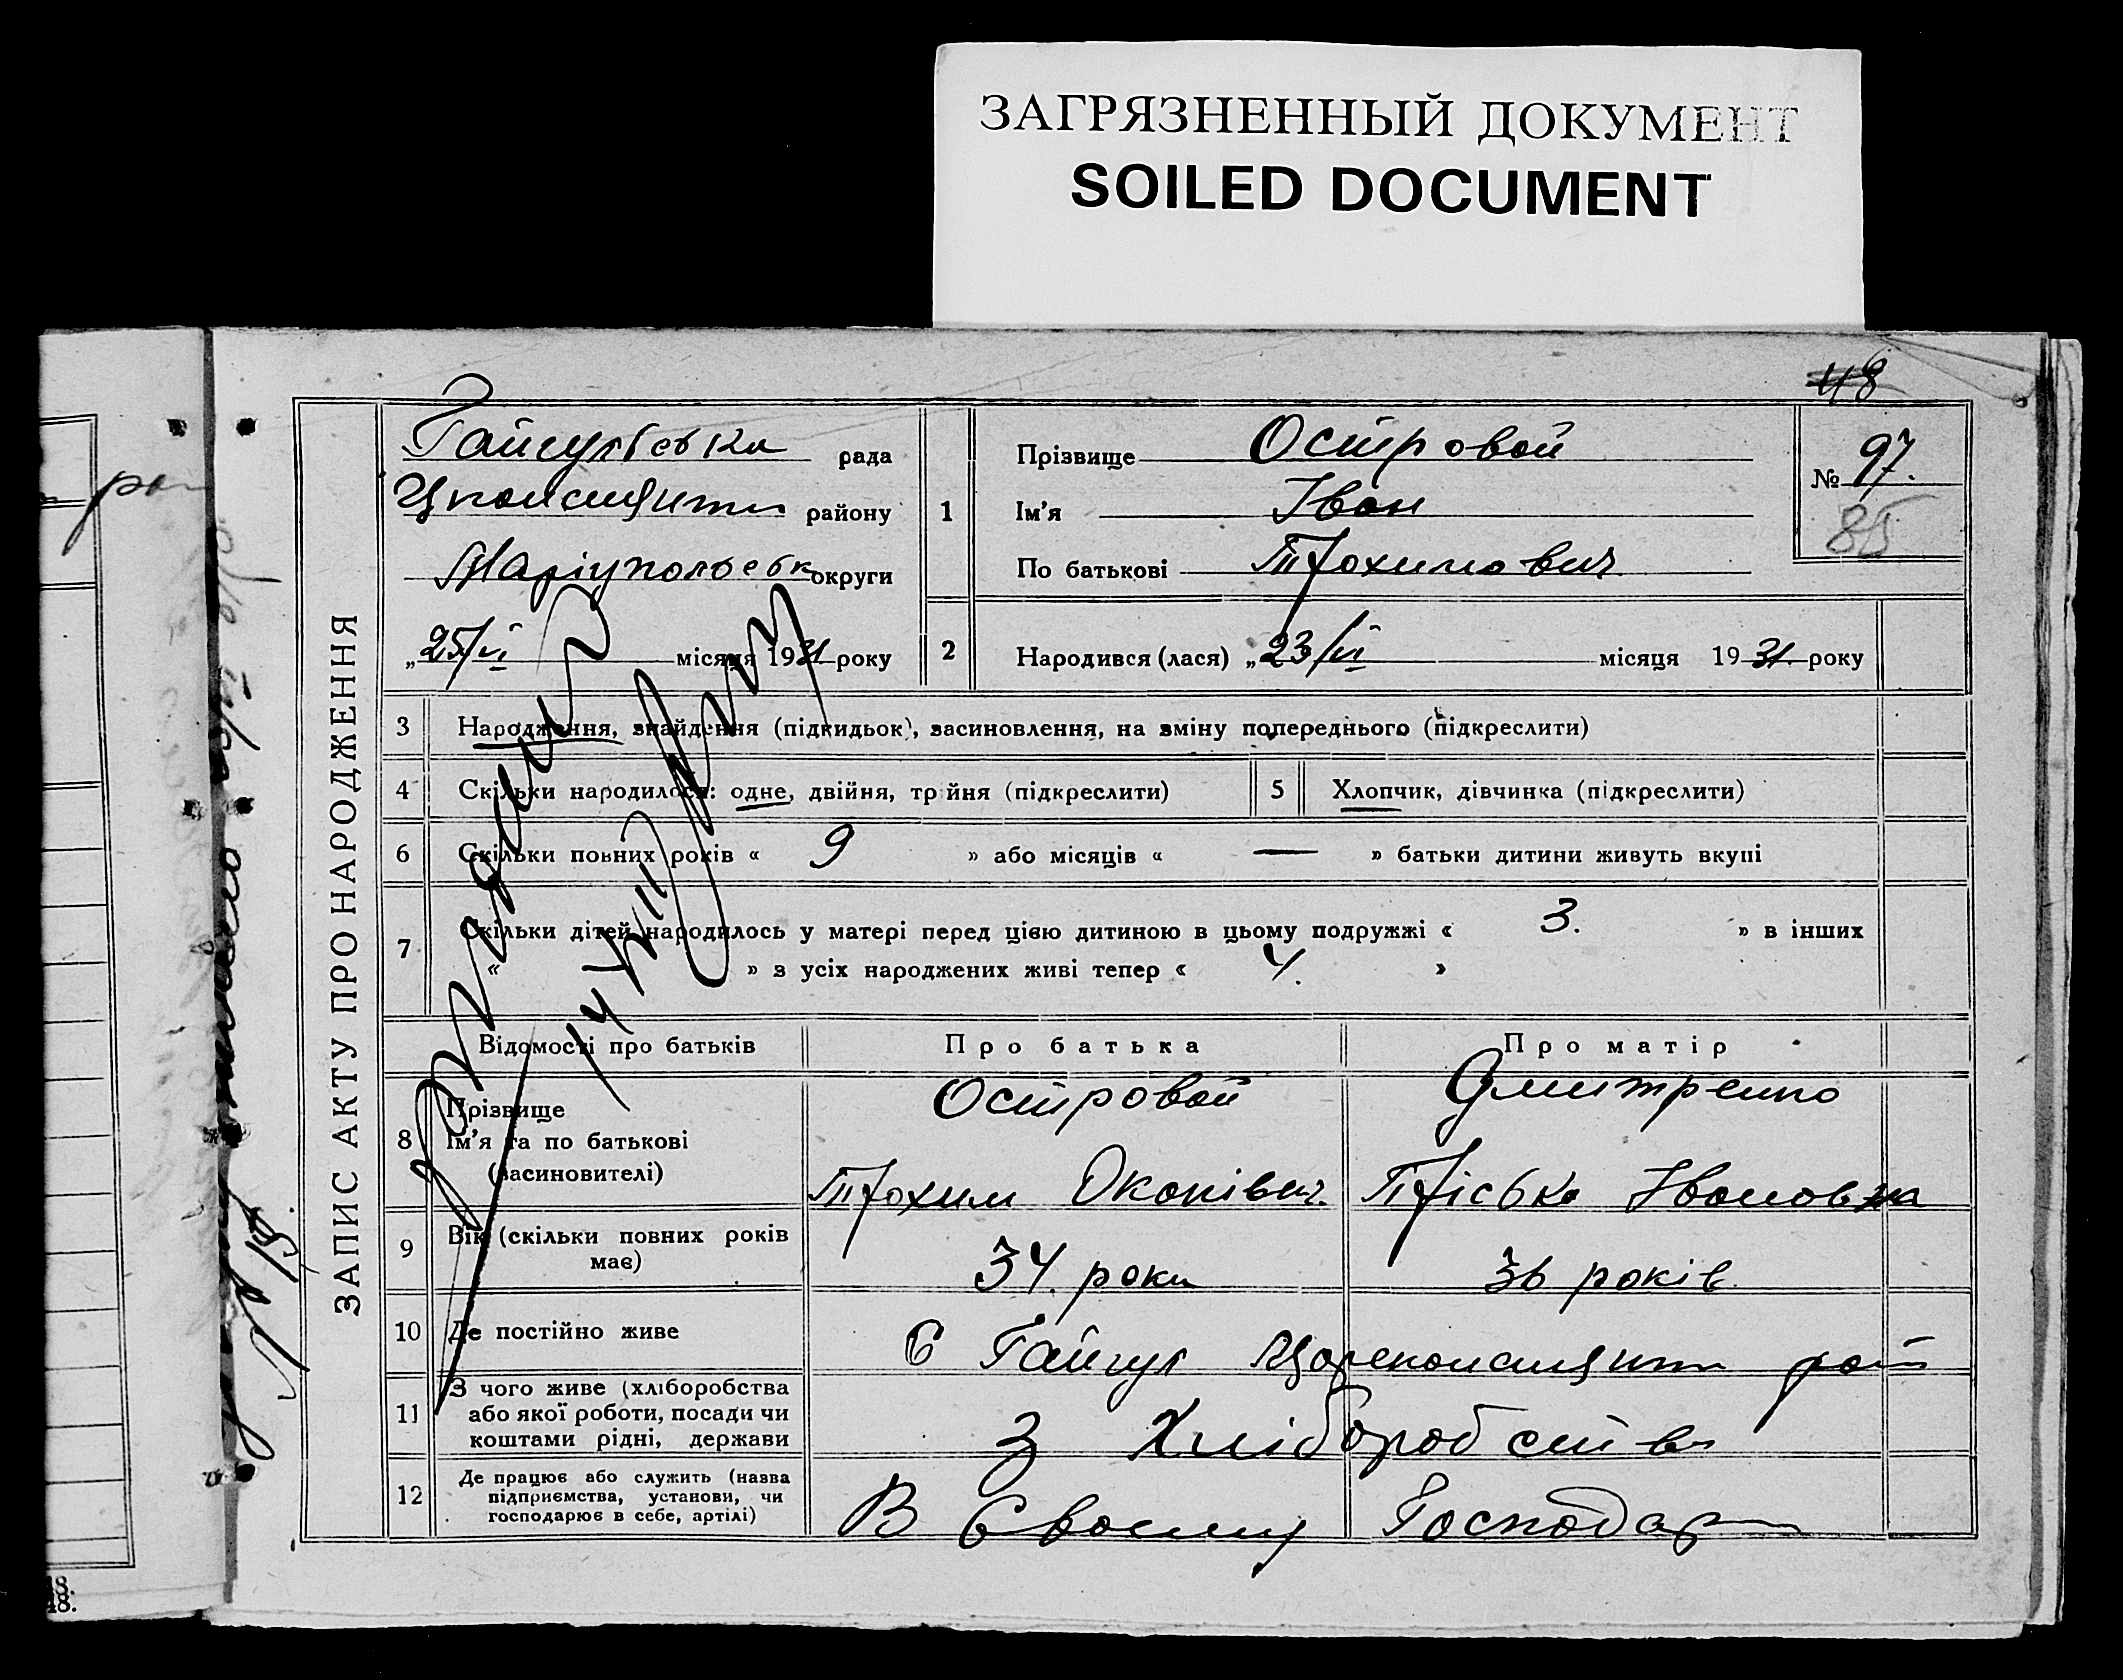 ЗАГРЯЗНЕННЫЙ ДОКУМЕНТ
SOILED DOCUMENT
48
ЗАПИС АКТУ ПРО НАРОДЖЕННЯ
рада
району
Маріупольськ округи
„25/VI місяця 1931 року
1
Прізвище Островой
Ім'я Іван
По батькові Трохимович
№ 97.
85
2
Народився (лася) „23/VI місяця 1931. року
3 Народження, знайдення (підкидьок), засиновлення, на зміну попереднього (підкреслити)
4 Скільки народилося: одне, двійня, трійня (підкреслити)
5 Хлопчик, дівчинка (підкреслити)
6 Скільки повних років « 9 » або місяців « — » батьки дитини живуть вкупі
7 Скільки дітей народилось у матері перед цією дитиною в цьому подружжі « 3. » в інших
« » з усіх народжених живі тепер « 4. »
Відомості про батьків
Про батька
Про матір
8 Прізвище
Ім'я та по батькові
(засиновителі)
Островой
Трохим
Дмитренко
Пріська Івановна
9 Вік (скільки повних років
має)
34 роки
36 років
10 Де постійно живе
С Гайчул рай
11 З чого живе (хліборобства
або якої роботи, посади чи
коштами рідні, держави
З Хліборобств
12 Де працює або служить (назва
підприємства, установи, чи
господарює в себе, артілі)
В Своєму Господар
рай
48.
48.